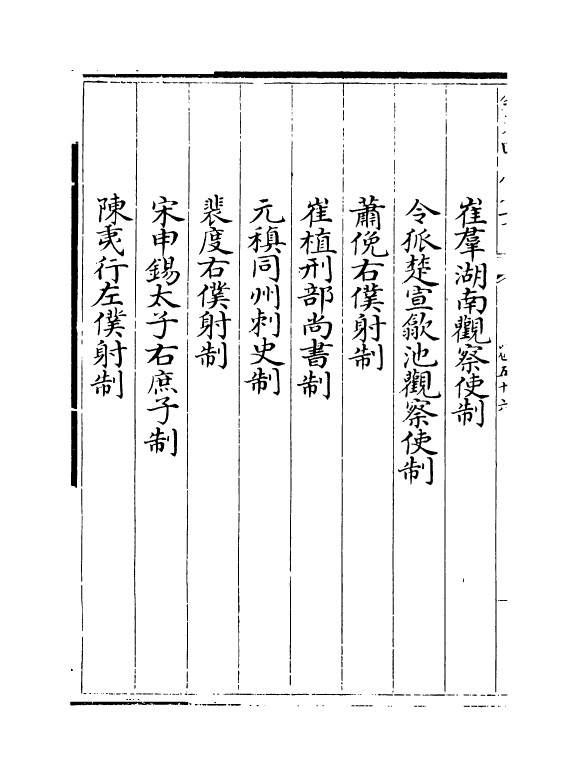 崔羣湖南觀察使制
令狐楚宣歙池觀察使制
蕭俛右僕射制
崔植刑部尚書制
元稹同州刺史制
裴度右僕射制
宋申錫太子右庶子制
陳夷行左僕射制
卷五十六